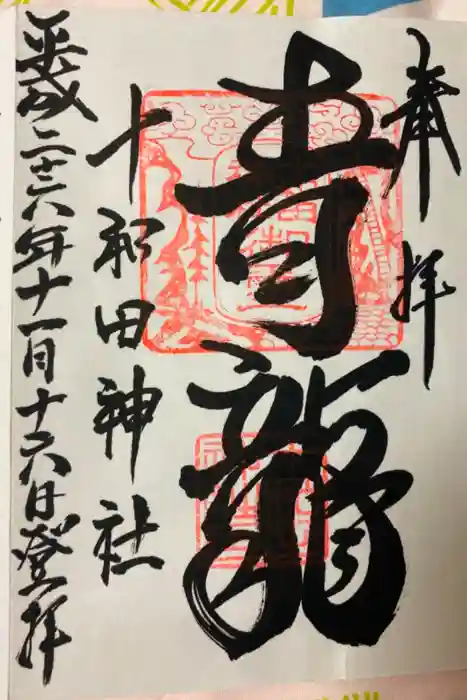 奉拝
青龍
十和田神社
平成二十六年十一月十六日登拝